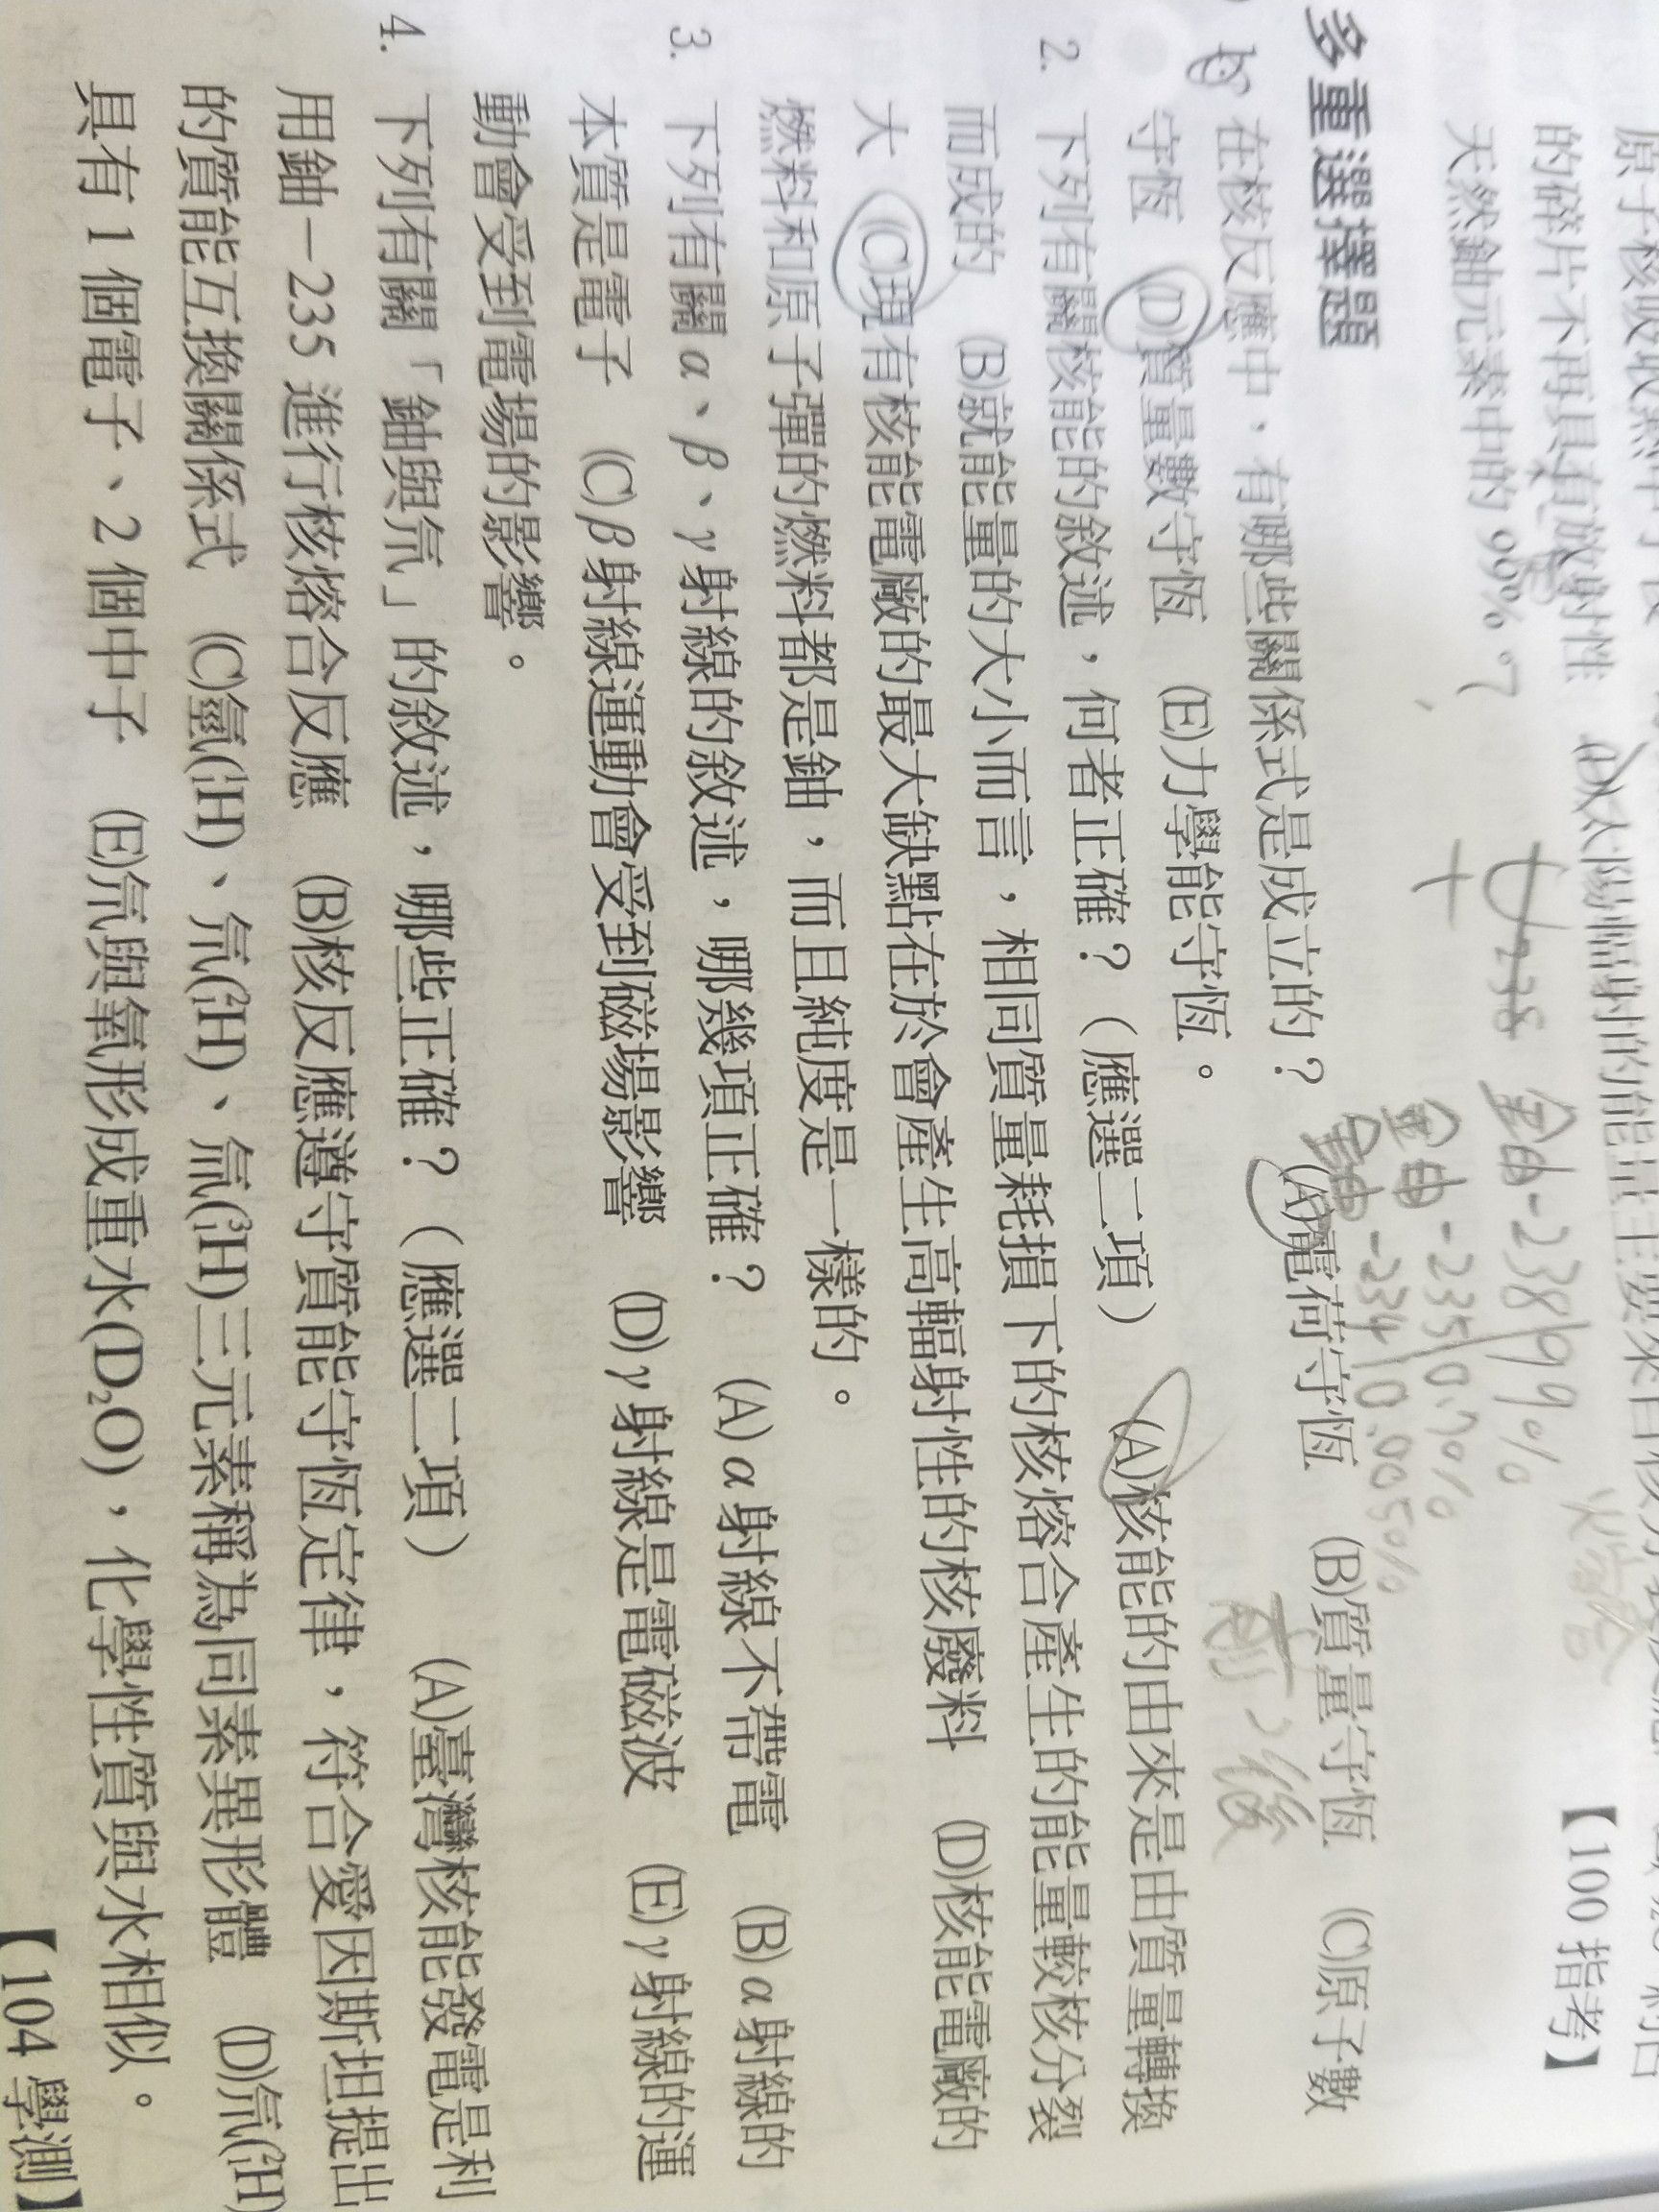 的碎片不再具有放射性 (D)太陽輻射的能量主要來自核分裂
天然鈾元素中的 99%。 【100 指考】
鈾-238 99%
鈾-235 0.7%
鈾-234 0.005%
多重選擇題
在核反應中,有哪些關係式是成立的? (A)電荷守恆 (B)質量守恆 (C)原子數
守恆 (D)質量數守恆 (E)力學能守恆。
前 後
2. 下列有關核能的敘述,何者正確?(應選二項) (A)核能的由來是由質量轉換
而成的 (B)就能量的大小而言,相同質量耗損下的核熔合產生的能量較核分裂
大 (C)現有核能電廠的最大缺點在於會產生高輻射性的核廢料 (D)核能電廠的
燃料和原子彈的燃料都是鈾,而且純度是一樣的。
3. 下列有關 α、β、γ 射線的敘述,哪幾項正確? (A) α 射線不帶電 (B) α 射線的
本質是電子 (C) β 射線運動會受到磁場影響 (D) γ 射線是電磁波 (E) γ 射線的運
動會受到電場的影響。
4. 下列有關「鈾與氘」的敘述,哪些正確?(應選二項) (A)臺灣核能發電是利
用鈾-235 進行核熔合反應 (B)核反應遵守質能守恆定律,符合愛因斯坦提出
的質能互換關係式 (C)氫(¹₁H)、氘(²₁H)、氚(³₁H)三元素稱為同素異形體 (D)氘(²₁H)
具有 1 個電子、2 個中子 (E)氘與氧形成重水(D₂O),化學性質與水相似。
【104 學測】